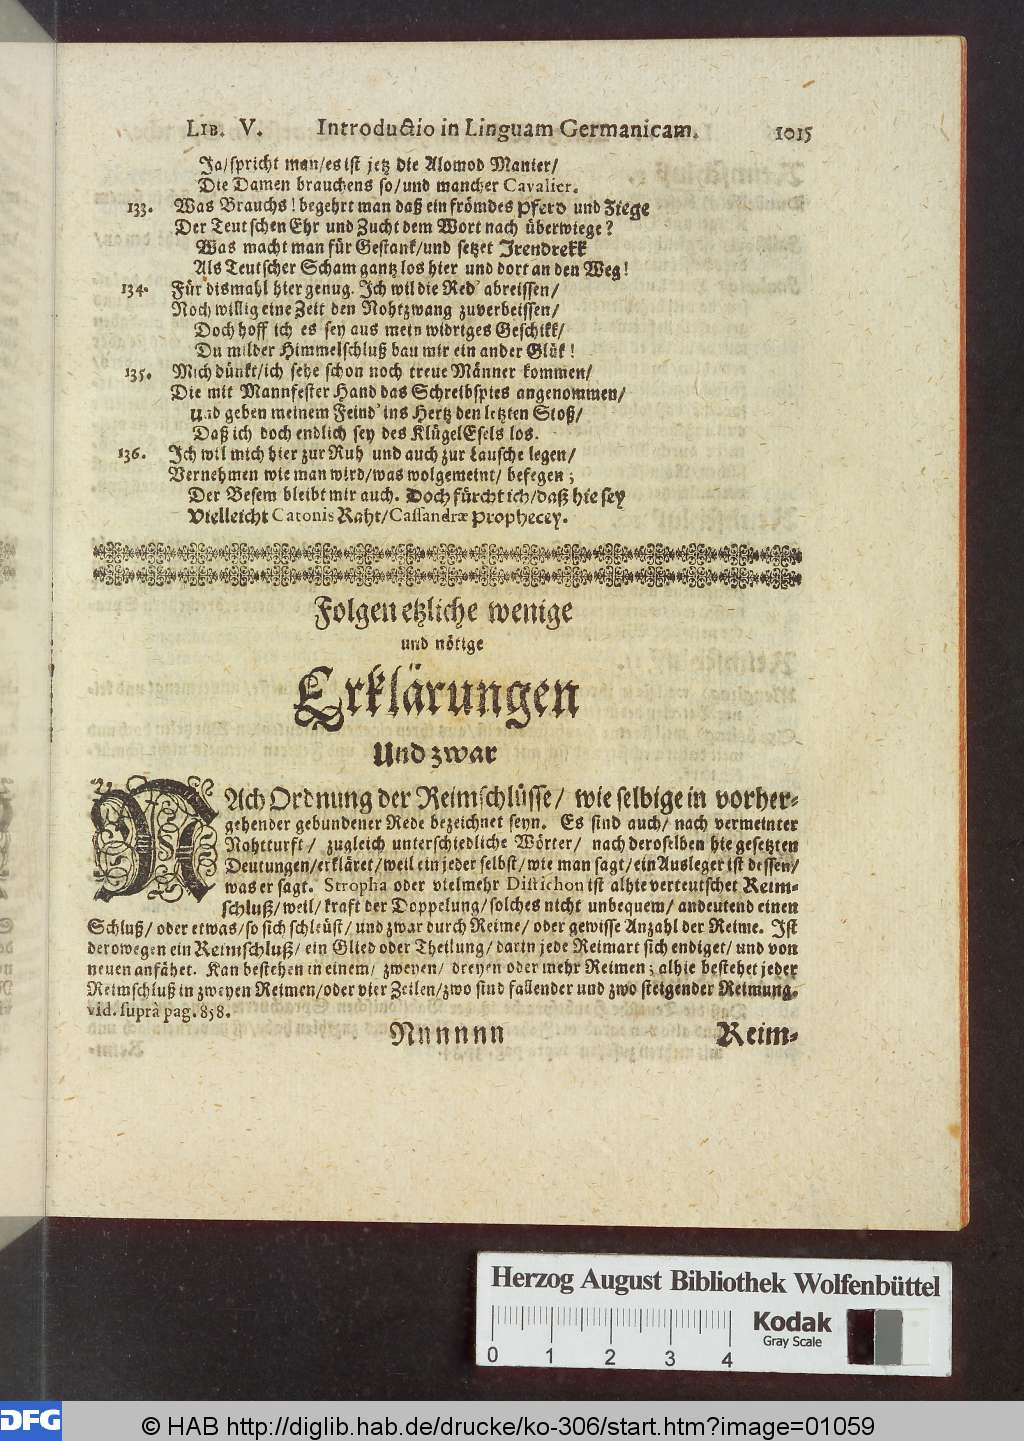 LIB. V. Introductio in Linguam Germanicam. 1015
Ja/spricht man/es ist jetz die Alomod Manier/
Die Damen brauchens so/und mancher Cavalier.
133. Was Brauchs! begehrt man daß ein frömdes Pferd und Ziege
Der Teutschen Ehr und Zucht dem Wort nach überwiege?
Was macht man für Gestank/und setzet Irendrekk
Als Teutscher Scham gantz los hier und dort an den Weg!
134. Für dismahl hier genug. Ich wil die Red' abreissen/
Noch willig eine Zeit den Nohtzwang zuverbeissen/
Doch hoff ich es sey aus mein widriges Geschikk/
Du milder Himmelschluß bau mir ein ander Glük!
135. Mich dünkt/ich sehe schon noch treue Männer kommen/
Die mit Mannfester Hand das Schreibspies angenommen/
und geben meinem Feind' ins Hertz den letzten Stoß/
Daß ich doch endlich sey des KlügelEsels los.
136. Ich wil mich hier zur Ruh und auch zur Lausche legen/
Vernehmen wie man wird/was wolgemeint/ befegen;
Der Besem bleibt mir auch. Doch fürcht ich/daß hie sey
Vielleicht Catonis Raht/Cassandræ Prophecey.
Folgen etzliche wenige
und nötige
Erklärungen
Und zwar
NAch Ordnung der Reimschlüsse/ wie selbige in vorher-
gehender gebundener Rede bezeichnet seyn. Es sind auch/ nach vermeinter
Nohtturft/ zugleich unterschiedliche Wörter/ nach deroselben hie gesetzten
Deutungen/erkläret/weil ein jeder selbst/wie man sagt/ein Ausleger ist dessen/
was er sagt. Stropha oder vielmehr Distichon ist alhie verteutschet Reim-
schluß/weil/ kraft der Doppelung/solches nicht unbequem/ andeutend einen
Schluß/ oder etwas/so sich schleüst/ und zwar durch Reime/ oder gewisse Anzahl der Reime. Ist
derowegen ein Reimschluß/ ein Glied oder Theilung/ darin jede Reimart sich endiget/ und von
neuen anfähet. Kan bestehen in einem/ zweyen/ dreyen oder mehr Reimen; alhie bestehet jeder
Reimschluß in zweyen Reimen/oder vier Zeilen/zwo sind fallender und zwo steigender Reimung.
vid. suprà pag. 858.
Nnnnnn Reim-
Herzog August Bibliothek Wolfenbüttel
Kodak
Gray Scale
0 1 2 3 4
DFG © HAB http://diglib.hab.de/drucke/ko-306/start.htm?image=01059